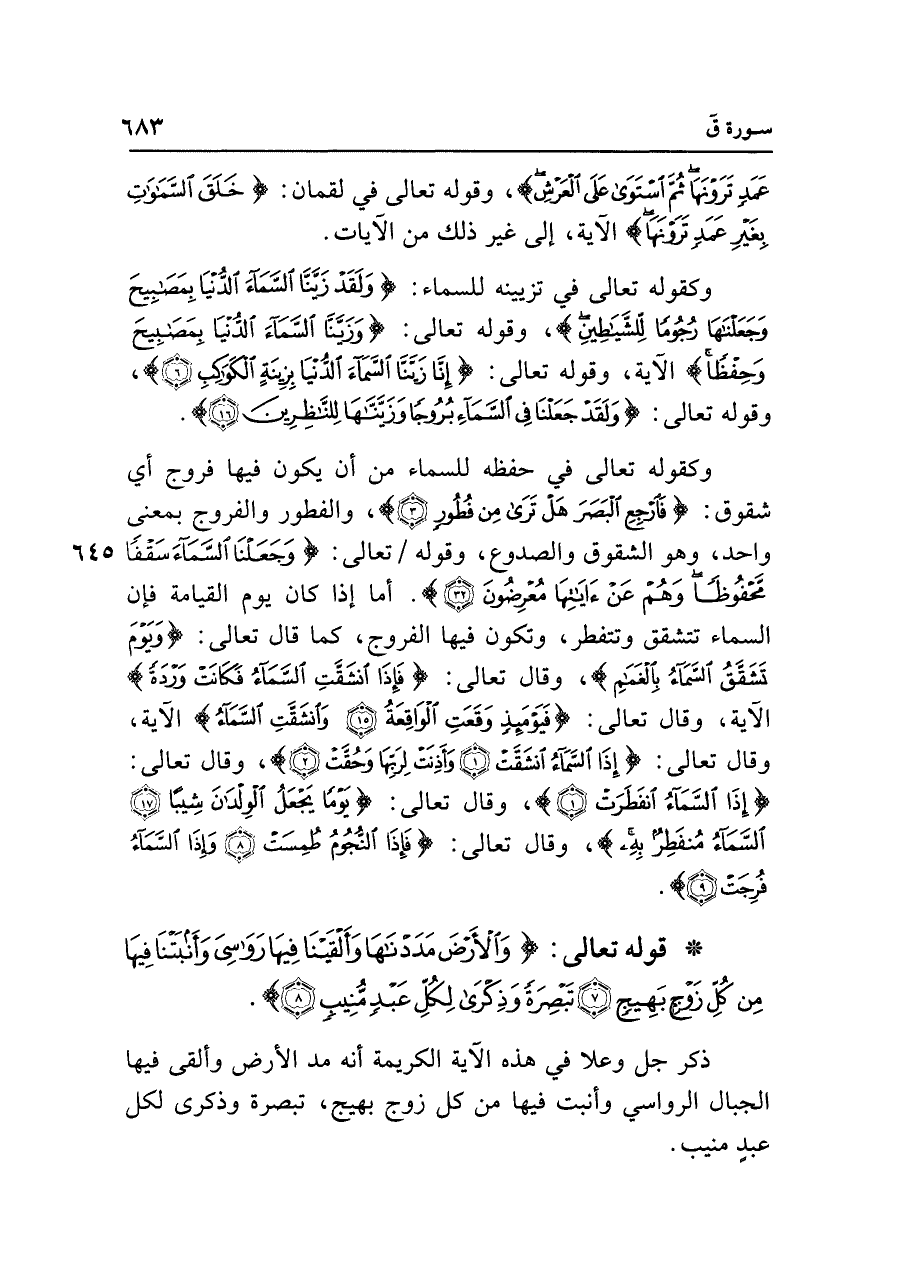 سورة قَ ٦٨٣
عَمَدٍ تَرَوْنَهَا ۖ ثُمَّ ٱسْتَوَىٰ عَلَى ٱلْعَرْشِ ۖ ﴾، وقوله تعالى في لقمان: ﴿ خَلَقَ ٱلسَّمَٰوَٰتِ
بِغَيْرِ عَمَدٍ تَرَوْنَهَا ۖ ﴾ الآية، إلى غير ذلك من الآيات.
وكقوله تعالى في تزيينه للسماء: ﴿ وَلَقَدْ زَيَّنَّا ٱلسَّمَآءَ ٱلدُّنْيَا بِمَصَٰبِيحَ
وَجَعَلْنَٰهَا رُجُومًا لِّلشَّيَٰطِينِ ۖ ﴾، وقوله تعالى: ﴿ وَزَيَّنَّا ٱلسَّمَآءَ ٱلدُّنْيَا بِمَصَٰبِيحَ
وَحِفْظًا ۚ ﴾ الآية، وقوله تعالى: ﴿ إِنَّا زَيَّنَّا ٱلسَّمَآءَ ٱلدُّنْيَا بِزِينَةٍ ٱلْكَوَاكِبِ ٦ ﴾،
وقوله تعالى: ﴿ وَلَقَدْ جَعَلْنَا فِى ٱلسَّمَآءِ بُرُوجًا وَزَيَّنَّٰهَا لِلنَّٰظِرِينَ ١٦ ﴾.
وكقوله تعالى في حفظه للسماء من أن يكون فيها فروج أي
شقوق: ﴿ فَٱرْجِعِ ٱلْبَصَرَ هَلْ تَرَىٰ مِن فُطُورٍ ٣ ﴾، والفطور والفروج بمعنى
واحد، وهو الشقوق والصدوع، وقوله / تعالى: ﴿ وَجَعَلْنَا ٱلسَّمَآءَ سَقْفًا ٦٤٥
مَّحْفُوظًا ۖ وَهُمْ عَنْ ءَايَٰتِهَا مُعْرِضُونَ ٣٢ ﴾. أما إذا كان يوم القيامة فإن
السماء تتشقق وتتفطر، وتكون فيها الفروج، كما قال تعالى: ﴿ وَيَوْمَ
تَشَقَّقُ ٱلسَّمَآءُ بِٱلْغَمَٰمِ ﴾، وقال تعالى: ﴿ فَإِذَا ٱنشَقَّتِ ٱلسَّمَآءُ فَكَانَتْ وَرْدَةً ﴾
الآية، وقال تعالى: ﴿ فَيَوْمَئِذٍ وَقَعَتِ ٱلْوَاقِعَةُ ١٥ وَٱنشَقَّتِ ٱلسَّمَآءُ ﴾ الآية،
وقال تعالى: ﴿ إِذَا ٱلسَّمَآءُ ٱنشَقَّتْ ١ وَأَذِنَتْ لِرَبِّهَا وَحُقَّتْ ٢ ﴾، وقال تعالى:
﴿ إِذَا ٱلسَّمَآءُ ٱنفَطَرَتْ ١ ﴾، وقال تعالى: ﴿ يَوْمًا يَجْعَلُ ٱلْوِلْدَٰنَ شِيبًا ١٧
ٱلسَّمَآءُ مُنفَطِرٌۢ بِهِۦ ۚ ﴾، وقال تعالى: ﴿ فَإِذَا ٱلنُّجُومُ طُمِسَتْ ٨ وَإِذَا ٱلسَّمَآءُ
فُرِجَتْ ٩ ﴾.
* قوله تعالى: ﴿ وَٱلْأَرْضَ مَدَدْنَٰهَا وَأَلْقَيْنَا فِيهَا رَوَٰسِىَ وَأَنۢبَتْنَا فِيهَا
مِن كُلِّ زَوْجٍۭ بَهِيجٍ ٧ تَبْصِرَةً وَذِكْرَىٰ لِكُلِّ عَبْدٍ مُّنِيبٍ ٨ ﴾.
ذكر جل وعلا في هذه الآية الكريمة أنه مد الأرض وألقى فيها
الجبال الرواسي وأنبت فيها من كل زوج بهيج، تبصرة وذكرى لكل
عبدٍ منيب.